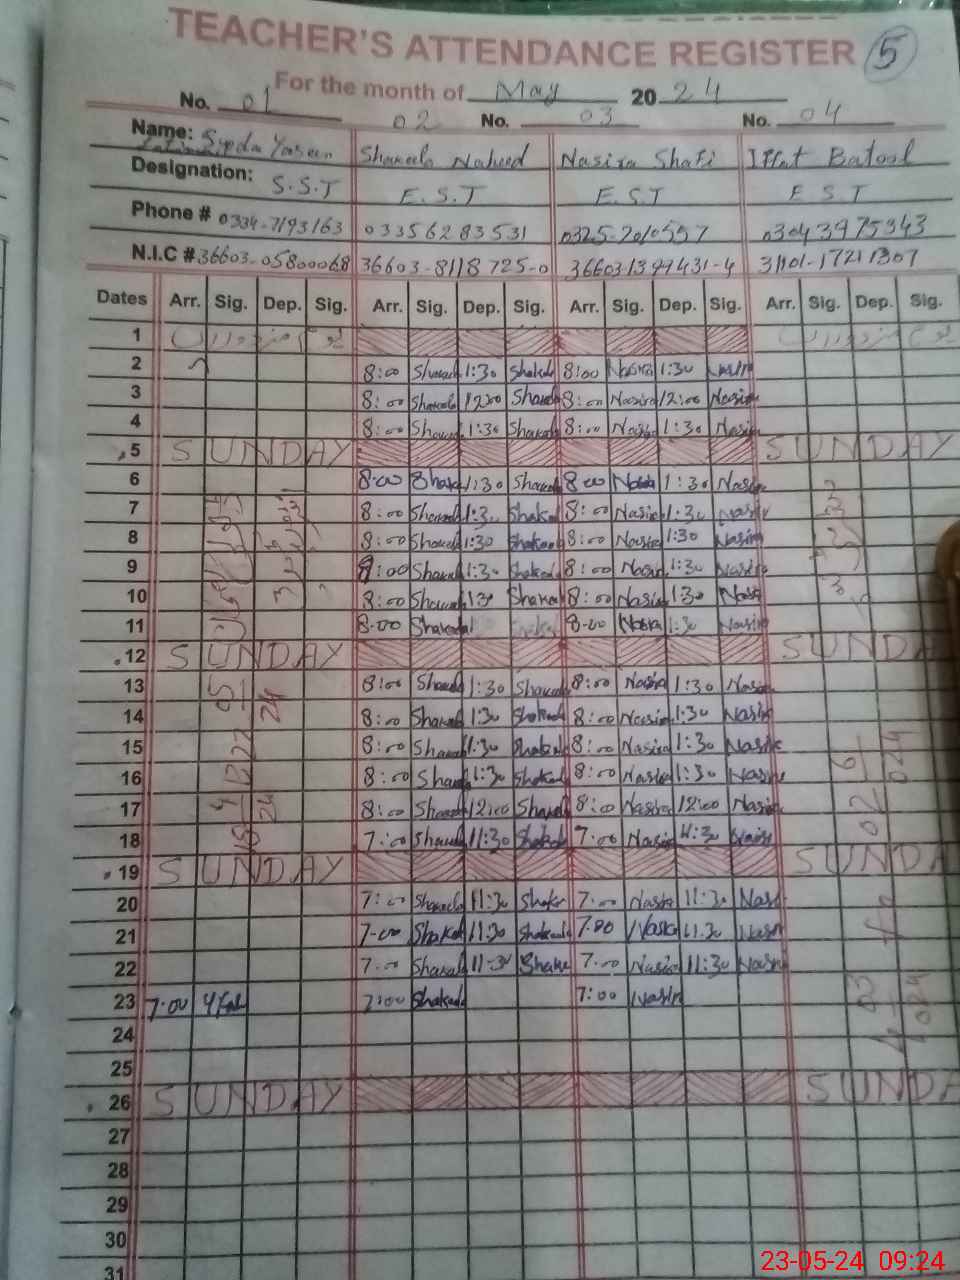 TEACHER'S ATTENDANCE REGISTER 5
For the month of May 2024
No. 01 02 No. 03 No. 04
Name: Syeda Yaseen Shakeela Naheed Nasira Shafi Iffat Batool
Designation: S.S.T E.S.T E.S.T E.S.T
Phone # 0334-7193163 03356283531 0325-2010557 03043975343
N.I.C # 36603-05800068 36603-8118725-0 36603-1397431-4 31101-17211307
Dates Arr. Sig. Dep. Sig. Arr. Sig. Dep. Sig. Arr. Sig. Dep. Sig. Arr. Sig. Dep. Sig.
1
2 8:00 Shakeela 1:30 Shakeela 8:00 Nasira 1:30 Nasira
3 8:00 Shakeela 12:00 Shakeela 8:00 Nasira 12:00 Nasira
4 8:00 Shakeela 1:30 Shakeela 8:00 Nasira 1:30 Nasira
5 SUNDAY SUNDAY
6 8:00 Shakeela 1:30 Shakeela 8:00 Nasira 1:30 Nasira
7 8:00 Shakeela 1:30 Shakeela 8:00 Nasira 1:30 Nasira
8 8:00 Shakeela 1:30 Shakeela 8:00 Nasira 1:30 Nasira
9 8:00 Shakeela 1:30 Shakeela 8:00 Nasira 1:30 Nasira
10 8:00 Shakeela 1:30 Shakeela 8:00 Nasira 1:30 Nasira
11 8:00 Shakeela 8:00 Nasira 1:30 Nasira
12 SUNDAY SUNDA
13 8:00 Shakeela 1:30 Shakeela 8:00 Nasira 1:30 Nasira
14 8:00 Shakeela 1:30 Shakeela 8:00 Nasira 1:30 Nasira
15 8:00 Shakeela 1:30 Shakeela 8:00 Nasira 1:30 Nasira
16 8:00 Shakeela 1:30 Shakeela 8:00 Nasira 1:30 Nasira
17 8:00 Shakeela 12:00 Shakeela 8:00 Nasira 12:00 Nasira
18 7:00 Shakeela 11:30 Shakeela 7:00 Nasira 11:30 Nasira
19 SUNDAY SUNDA
20 7:00 Shakeela 11:30 Shakeela 7:00 Nasira 11:30 Nasira
21 7:00 Shakeela 11:30 Shakeela 7:00 Nasira 11:30 Nasira
22 7:00 Shakeela 11:30 Shakeela 7:00 Nasira 11:30 Nasira
23 7:00 7:00 Shakeela 7:00 Nasira
24
25
26 SUNDAY SUNDA
27
28
29
30
31
23-05-24 09:24